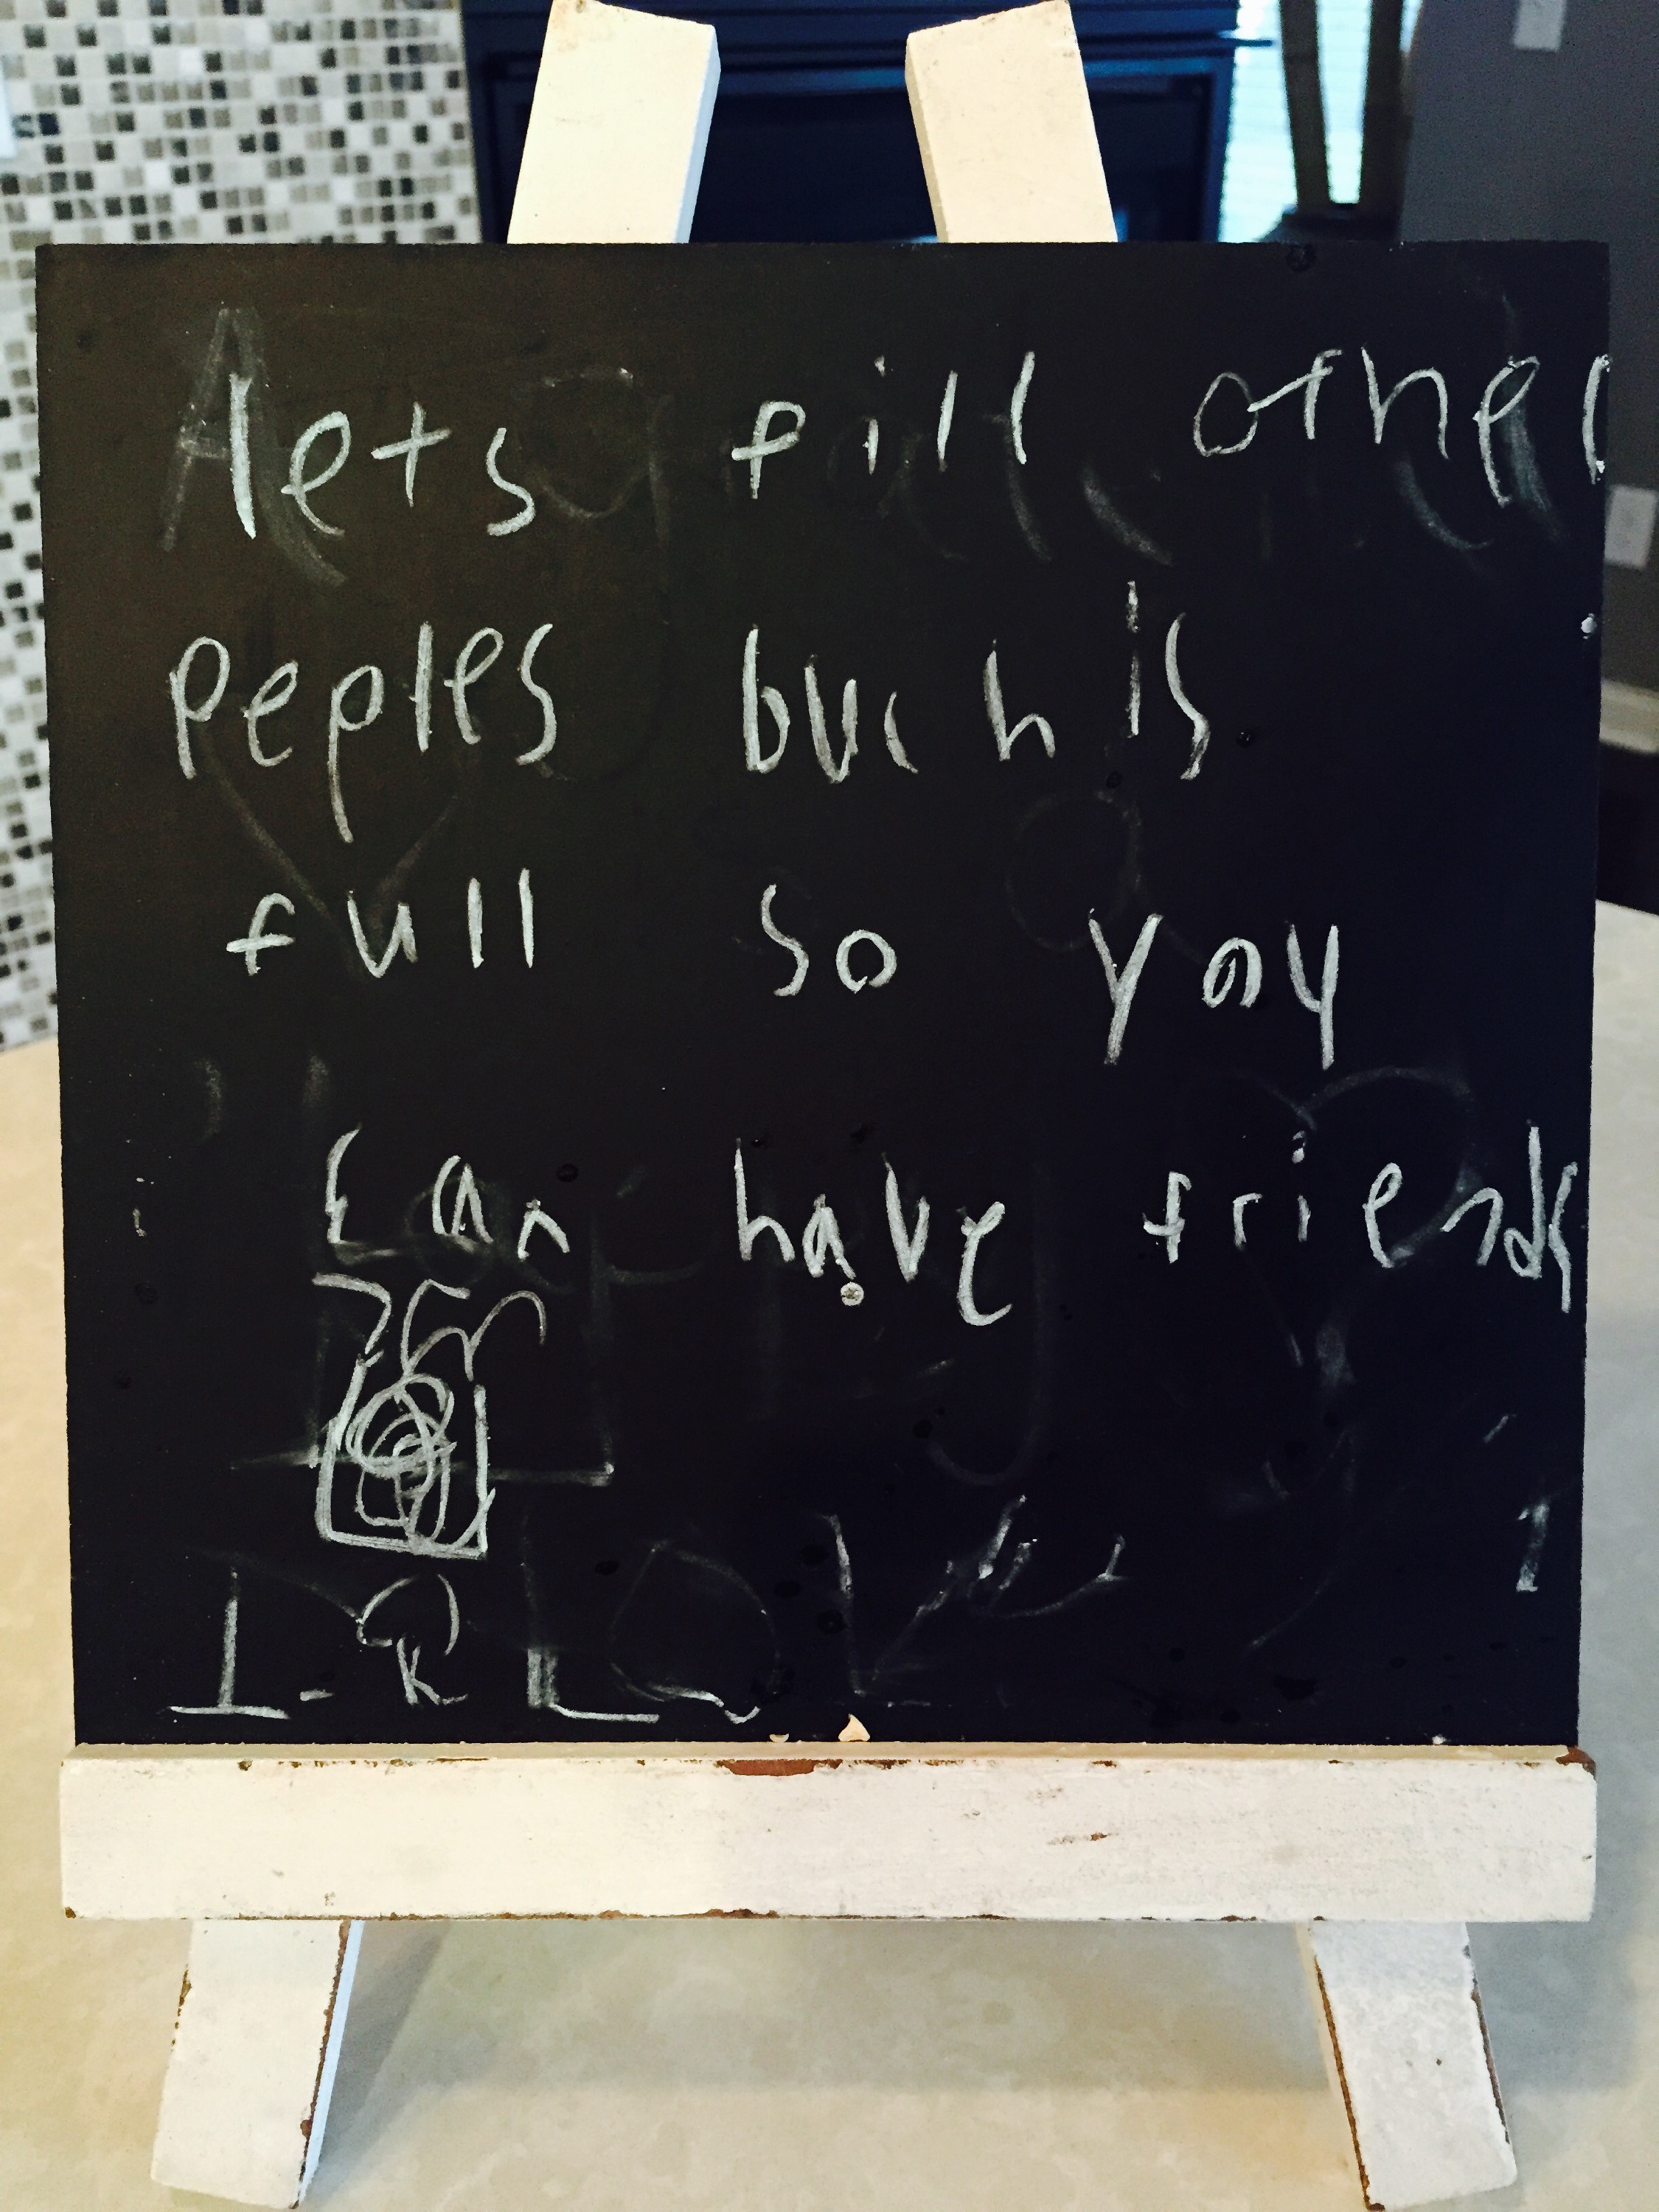 lets fill other
peples buchis
full so you
can have friends